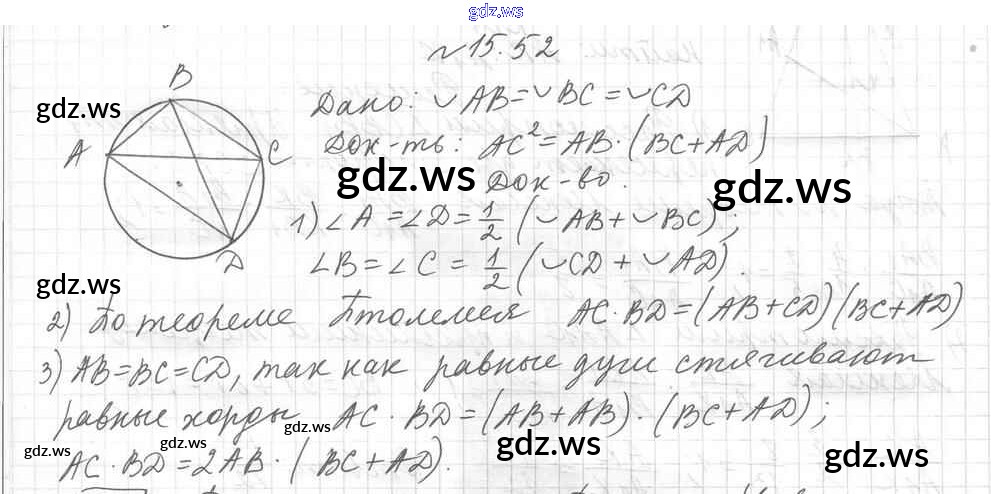 gdz.ws
№15.52
B
gdz.ws
A
C
D
Дано: ◡AB=◡BC=◡CD
Док-ть: AC²=AB·(BC+AD)
gdz.ws
Док-во.
gdz.ws
1) ∠A=∠D=1/2(◡AB+◡BC);
∠B=∠C=1/2(◡CD+◡AD).
gdz.ws
2) По теореме Птолемея AC·BD=(AB+CD)(BC+AD)
3) AB=BC=CD, так как равные дуги стягивают
равные хорды AC·BD=(AB+AB)·(BC+AD);
gdz.ws
AC·BD=2AB·(BC+AD).
gdz.ws
gdz.ws
gdz.ws
gdz.ws